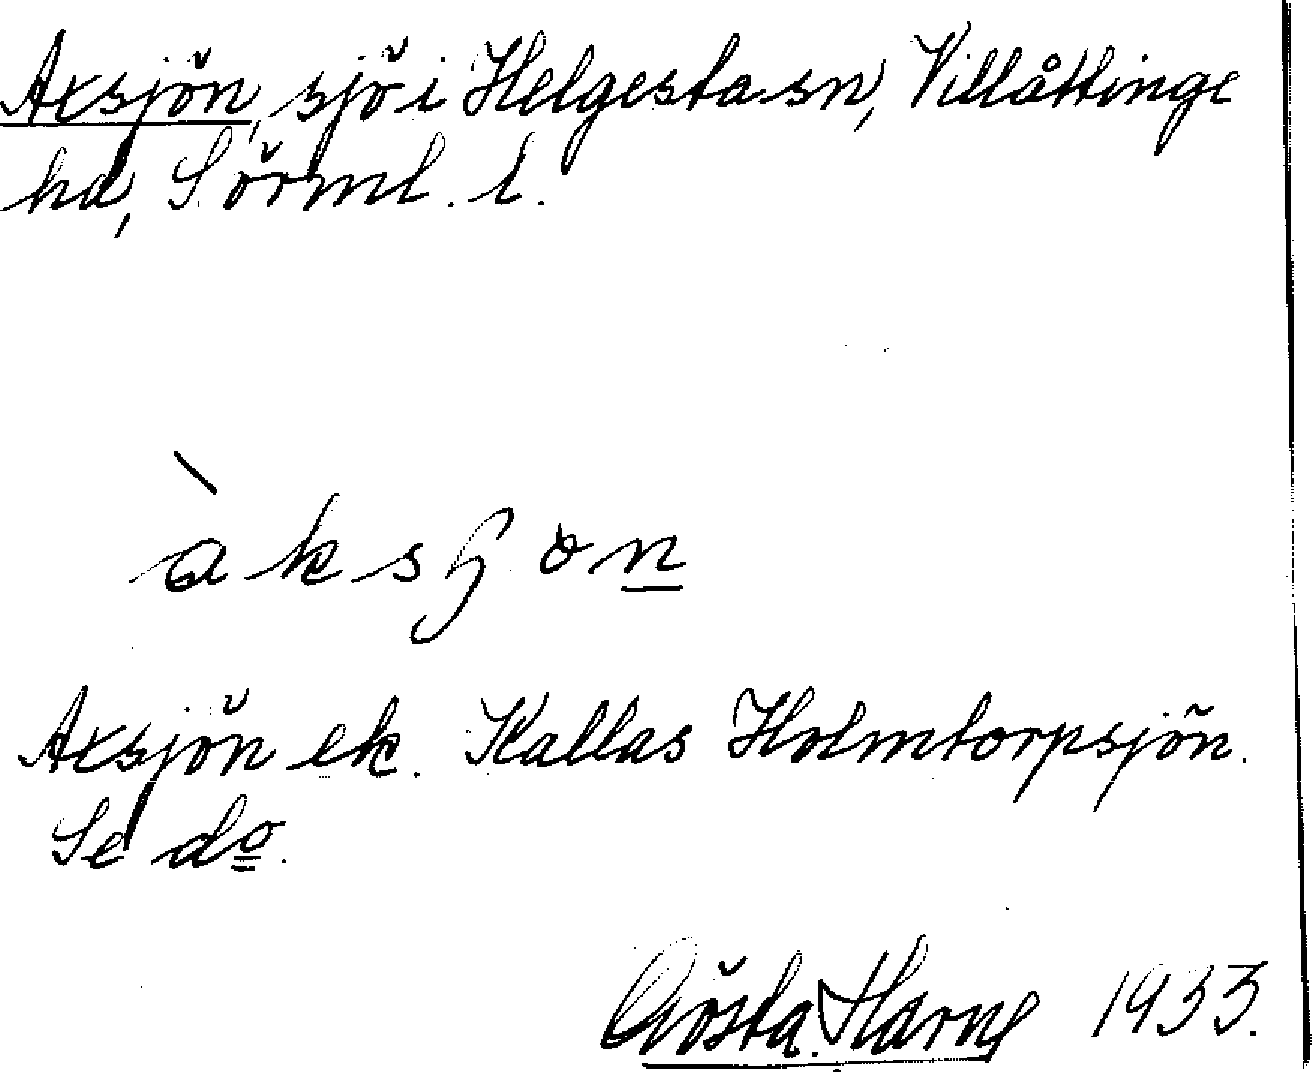 Axsjön, sjö i Helgesta sn, Villåttinge
hd, Sörml. l.
àksɧon
Axsjön ek. Kallas Holmtorpsjön.
Se do.
Gösta Harne 1933.